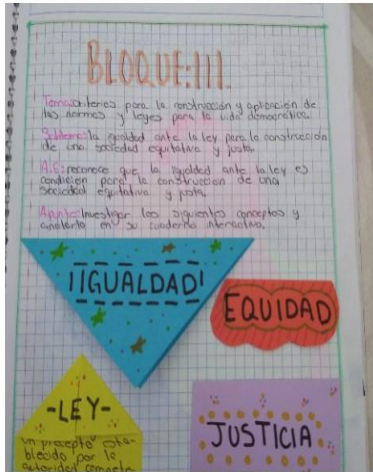 BLOQUE:III.
Tema:criterios para la construcción y aplicación de
las normas y leyes para la vida democrática.
Subtema:la igualdad ante la ley para la construcción
de una sociedad equitativa y justa.
A.E:reconoce que la igualdad ante la ley es
condición para la construccion de una
sociedad equitativa y justa.
Apunte:Investigar los siguientes conceptos y
anotarlo en su cuaderno interactivo.
¡IGUALDAD!
EQUIDAD
-LEY-
un precepto esta-
blecido por la
autoridad compete-
JUSTICIA